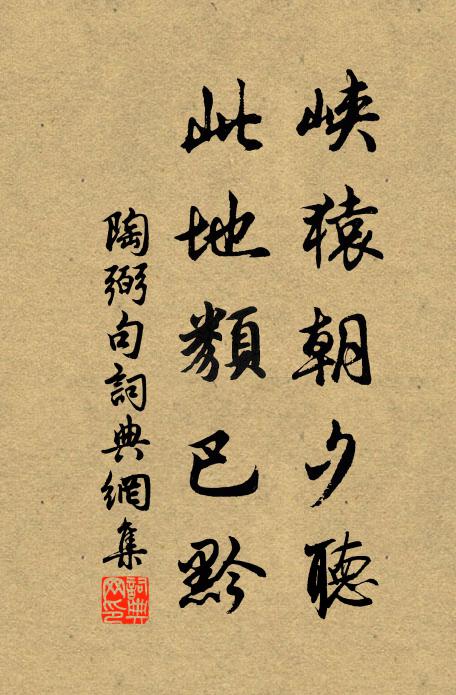 峽猿朝夕聽
此地類巴黔
陶弼句詞典網集
詞典網印